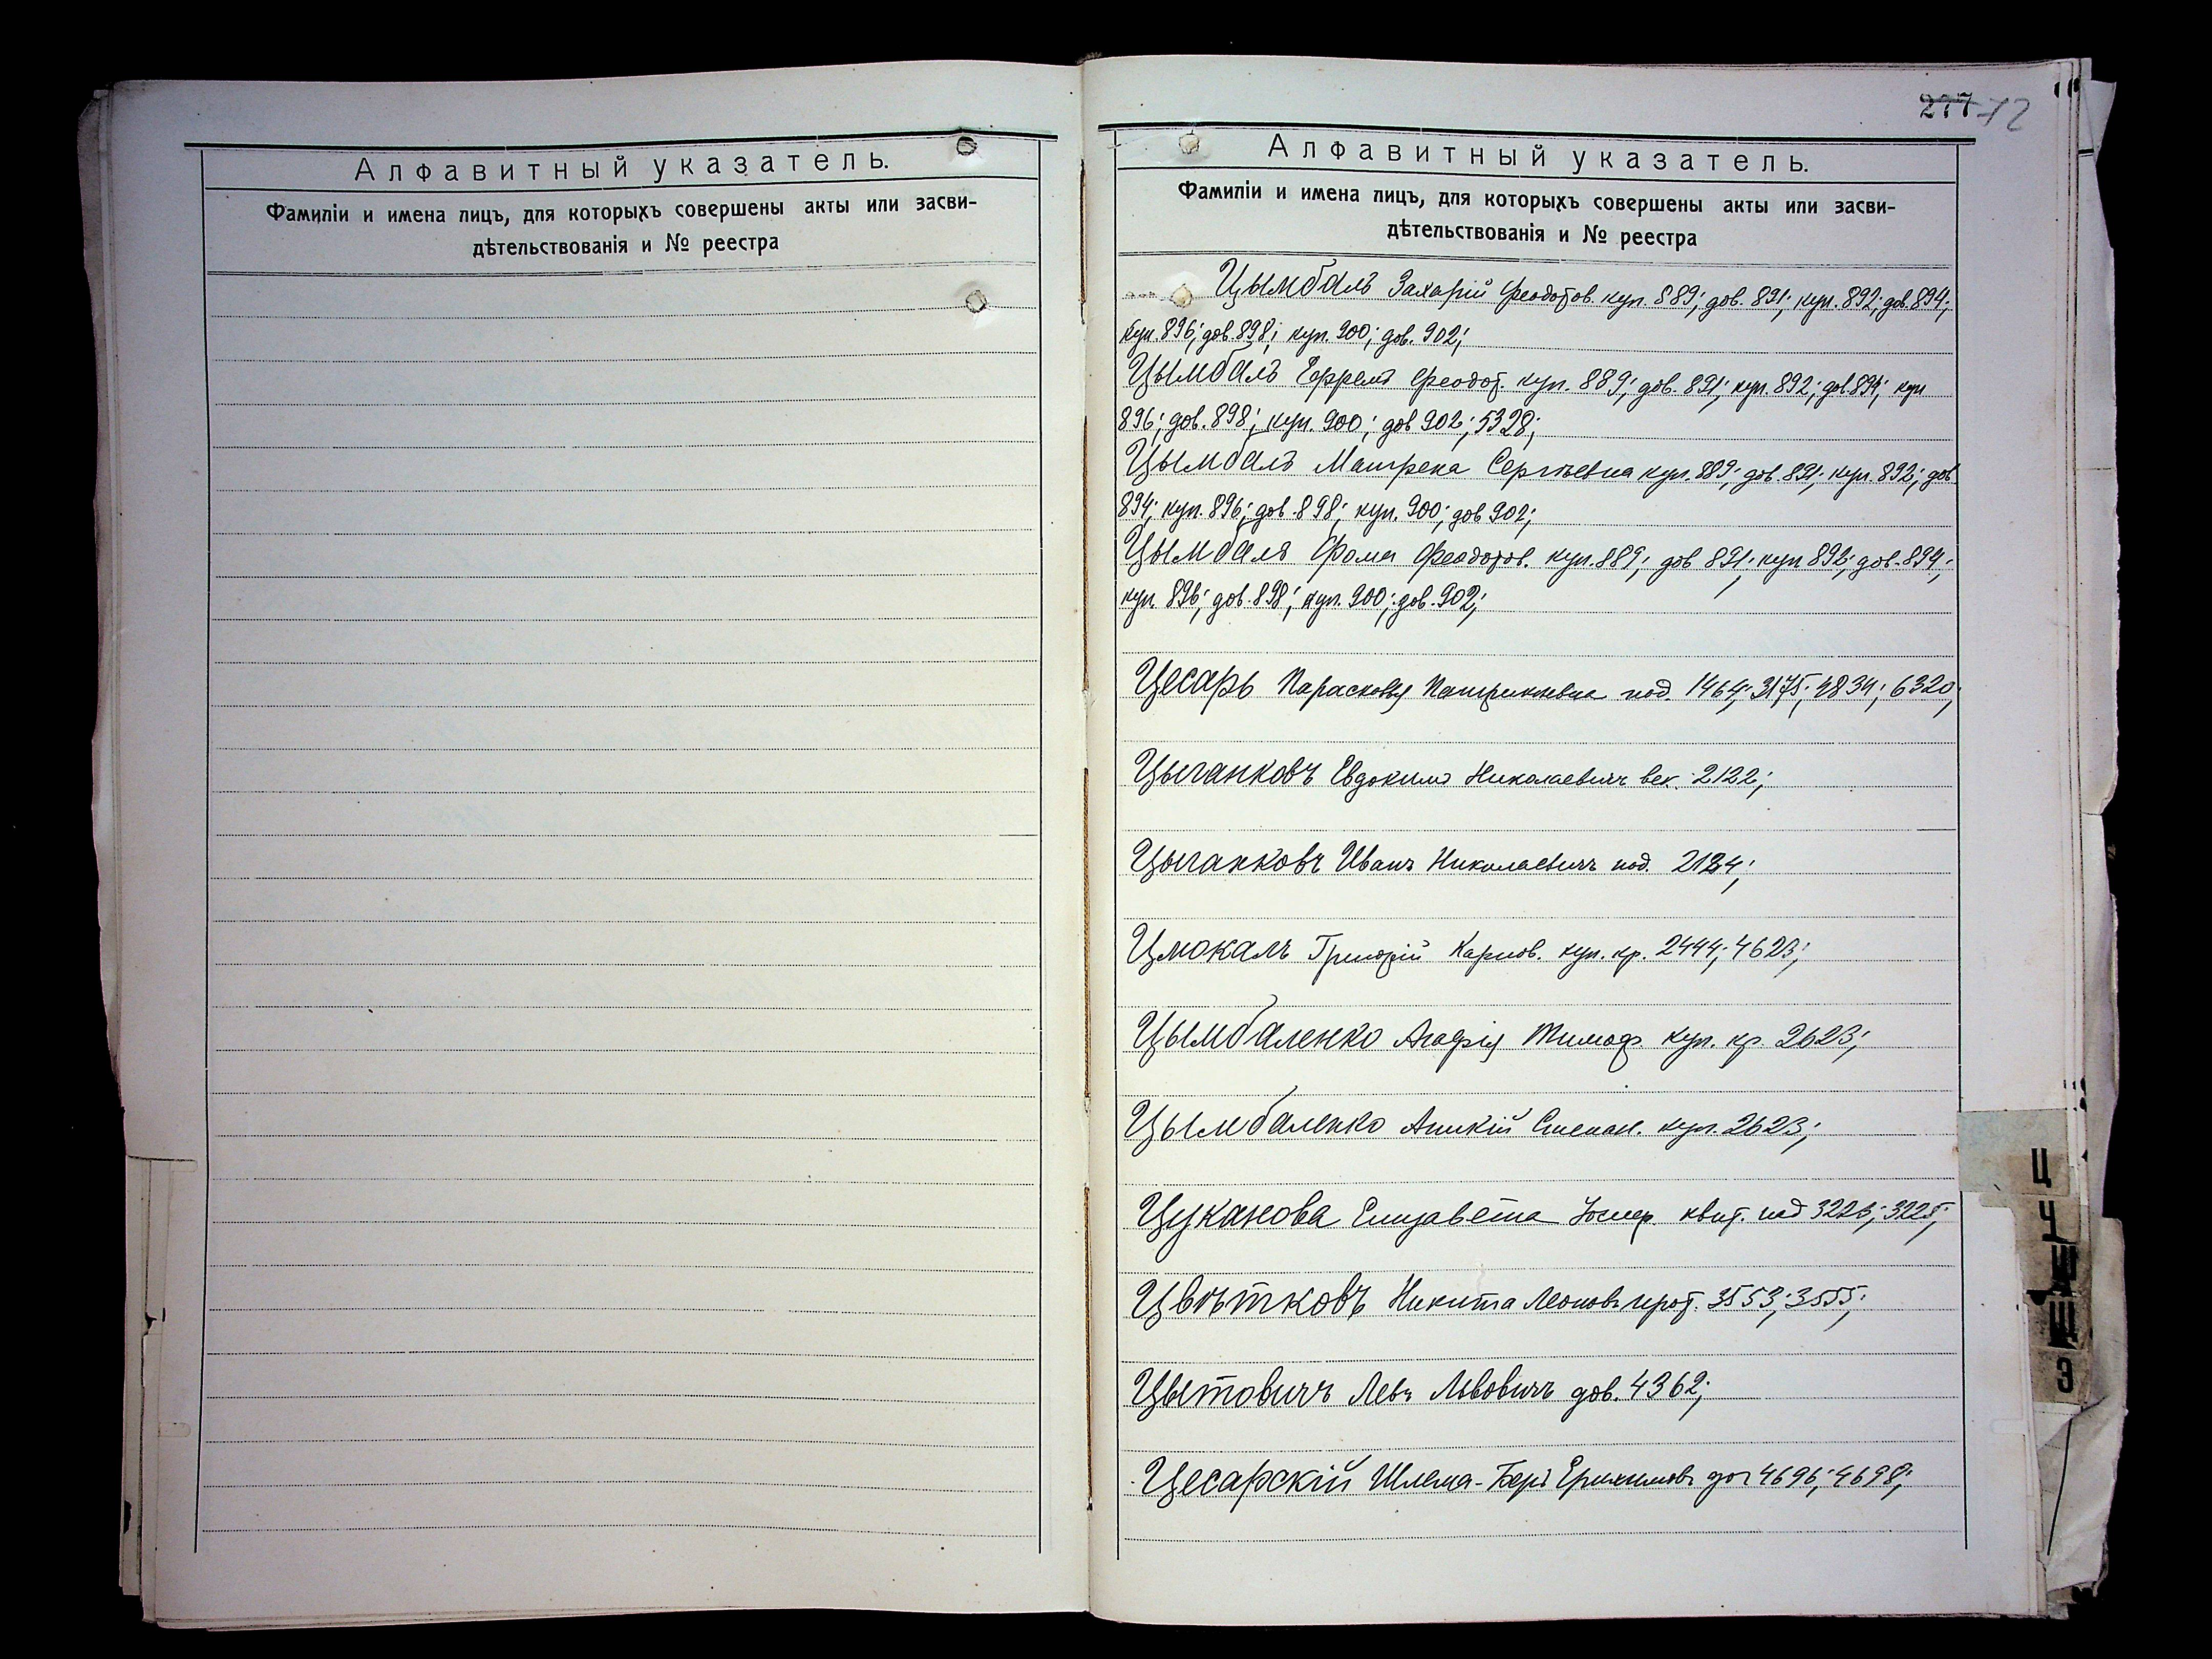 Алфавитный указатель.
Фамиліи и имена лицъ, для которыхъ совершены акты или засви-
дѣтельствованія и № реестра
277 72
Алфавитный указатель.
Фамиліи и имена лицъ, для которыхъ совершены акты или засви-
дѣтельствованія и № реестра
Цымбалъ Захарій Феодотов. куп. 889; дов. 891; куп. 892; дов. 894;
куп. 896; дов. 898; куп. 900; дов. 902;
Цымбалъ Ефремъ Феодот. куп. 889; дов. 891; куп. 892; дов. 894; куп
896; дов. 898; куп. 900; дов 902; 5328;
Цымбалъ Матрена Сергѣевна куп. 889; дов. 891; куп. 892; дов
894; куп. 896; дов. 898; куп. 900; дов 902;
Цымбалъ Фома Феодотов. куп. 889; дов 891; куп 892; дов. 894;
куп. 896; дов. 898; куп. 900; дов. 902;
Цесарь Парасковья Патрикѣевна под. 1464; 3175; 4834; 6320;
Цыганковъ Евдокимъ Николаевичъ век. 2122;
Цыганковъ Иванъ Николаевичъ под. 2124;
Цмокалъ Григорій Карпов. куп. кр. 2444; 4623;
Цымбаленко Агафія Тимоф. куп. кр. 2623;
Цымбаленко Аникій Степан. куп. 2623;
Цуканова Елизавета квит. под 3226; 3225;
Цвѣтковъ Никита Леоновъ прот. 3553; 3555;
Цытовичъ Левъ Львовичъ дов. 4362;
Цесарскій Шлема-Беръ 4696; 4698;
Ц
Ч
Ш
Щ
Э